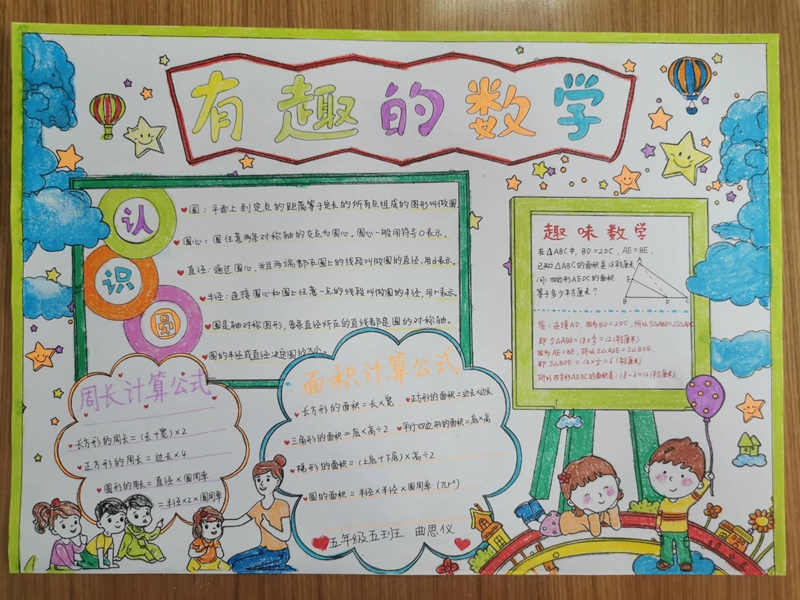 有趣的数学
认识圆
圆：平面上到定点的距离等于定长的所有点组成的图形叫做圆
圆心：圆任意两条对称轴的交点为圆心，圆心一般用符号O表示。
直径：通过圆心，并且两端都在圆上的线段叫做圆的直径，用d表示。
半径：连接圆心和圆上任意一点的线段叫做圆的半径，用r表示。
圆是轴对称图形，每条直径所在的直线都是圆的对称轴。
圆的半径或直径决定圆的大小。
趣味数学
在△ABC中，BD=2DC，AE=BE，
已知△ABC的面积是18平方厘米
问：四边形AEDC的面积
等于多少平方厘米？
A
E
B D C
答：连接AD，因为BD=2DC，所以S△ABD=2S△ADC
即S△ABD=18×⅔=12(平方厘米)
因为AE=BE，所以S△ADE=S△BDE，
即S△BDE=12×½=6(平方厘米)
所以四边形AEDC的面积是：18-6=12(平方厘米)
周长计算公式
长方形的周长=(长+宽)×2
正方形的周长=边长×4
圆形的周长=直径×圆周率
=半径×2×圆周率
面积计算公式
长方形的面积=长×宽 正方形的面积=边长×边长
三角形的面积=底×高÷2 平行四边形的面积=底×高
梯形的面积=(上底+下底)×高÷2
圆的面积=半径×半径×圆周率(πr²)
五年级五班 曲思仪